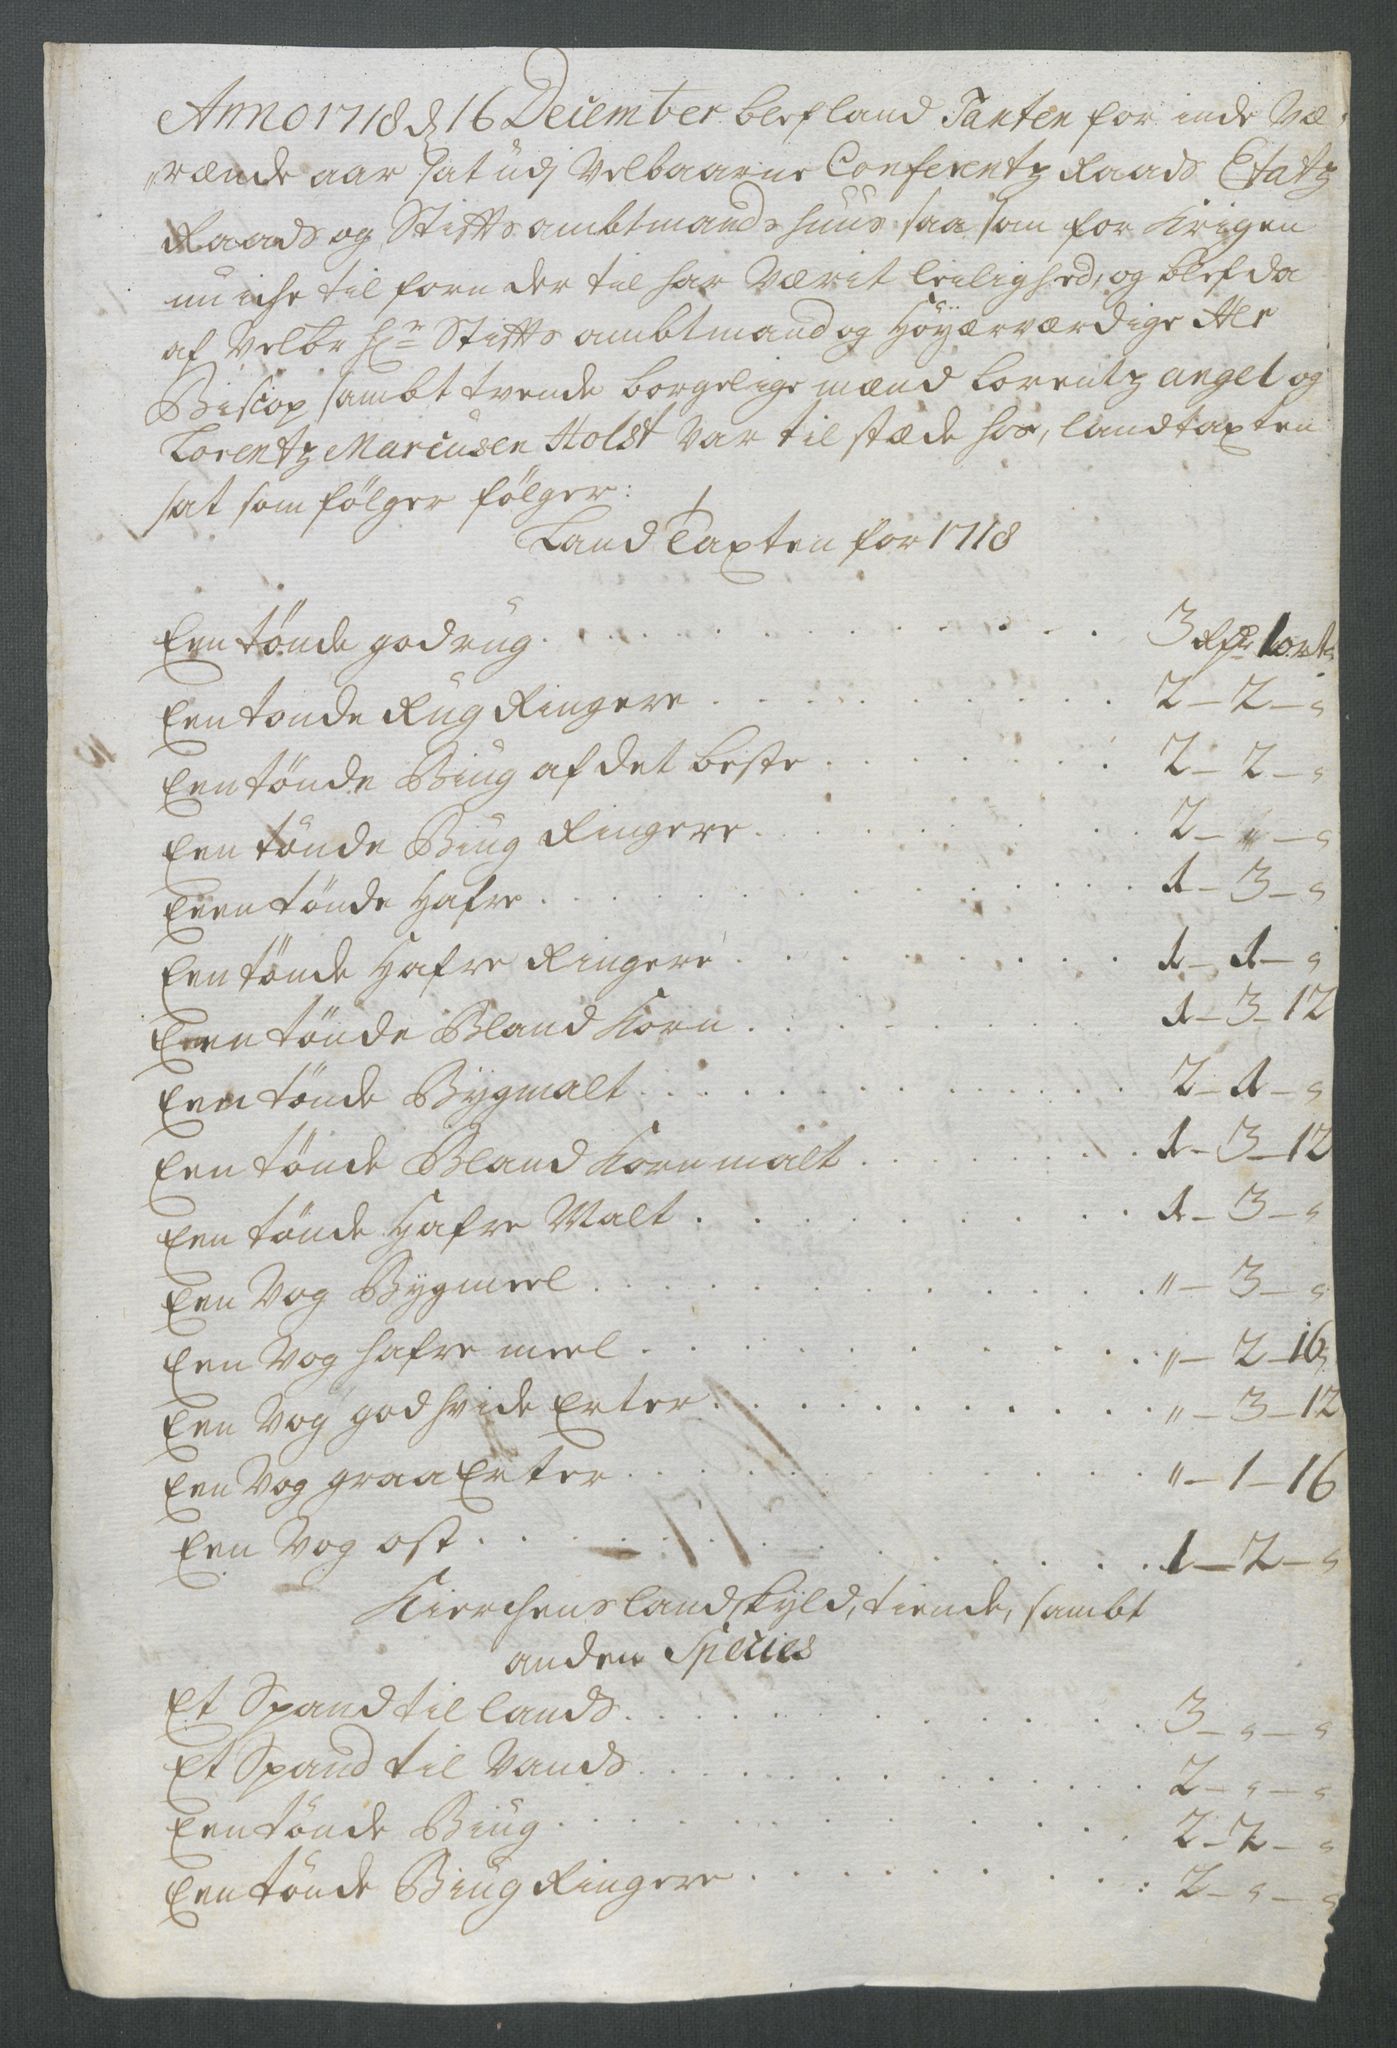 Anno 1718 d 16 December blef land Taxten for inde Væ¬
„rænde aar sat udj Velbaarne Conferentz Raads Etatz
Raads og Stifts ambtmands huus saa som for Krigen
nu iche til forn der til har Værit leilighed, og blef da
af Velbr Hr Stifts ambtmand og Höyærværdige Hr
Biscop sambt tvende borgelige mænd Lorentz angel og
Lorentz Marcusen Holst var til stæde hos, landtaxten
sat som fölger fölger:
Land Taxten for 1718
Een tönde god rug . . . 3 Rdr 1 ort s
Een tonde Rug Ringere . . . 2 – 2 – s
Een tönde Biug af det beste . . . 2 – 2 – s
Een tönde Biug Ringere . . . 2 – „ – s
Een tönde Hafre . . . 1 – 3 – s
Een tönde Hafre Ringere . . . 1 – 1 – s
Een tönde Bland Korn . . . 1 – 3 – 12
Een tönde Bygmalt . . . 2 – 1 – s
Een tönde Bland Korn malt . . . 1 – 3 – 12
Een tönde Hafre Malt . . . 1 – 3 – s
Een Vog Bygmeel . . . „ – 3 – s
Een Vog hafre meel . . . „ – 2 – 16 s
Een Vog god hvide Erter . . . „ – 3 – 12
Een Vog graa Erter . . . „ – 1 – 16
Een Vog ost . . . 1 – 2 – s
Kierchens landskyld, tiende, sambt
anden Species
Et Spand til lands . . . 3 – s – s
Et Spand til Vands . . . 2 – s – s
Een tönde Biug . . . 2 – 2 – s
Een tönde Biug Ringere . . . 2 – s – s